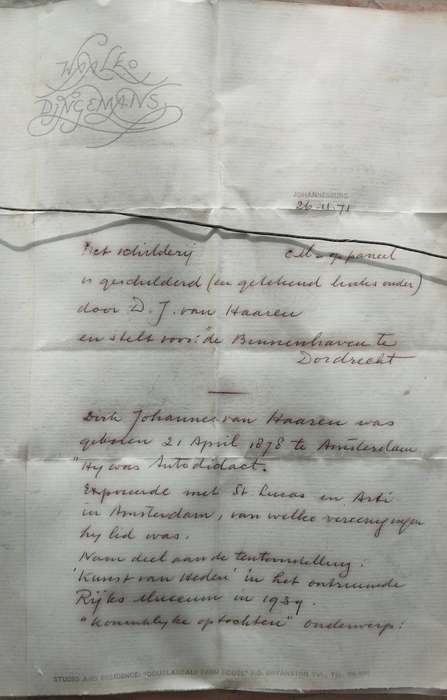 WAALKO
DINGEMANS
JOHANNESBURG
26-11-71
Het schilderij op paneel
is geschilderd (en getekend links onder)
door D. J. van Haaren
en stelt voor: de Binnenhaven te
Dordrecht
Dirk Johannes van Haaren was
geboren 21 April 1878 te Amsterdam
"Hy was Autodidact.
Exposeerde met St. Lucas en Arti
in Amsterdam, van welke vereenigingen
hy lid was.
Nam deel aan de tentoonstelling:
'Kunst van Heden' in het ontruimde
Rijks Museum in 1939.
"Koninklyke optochten" onderwerp:
STUDIO AND RESIDENCE: "DOUGLASDALE FARM HOUSE" P.O. BRYANSTON TVL., TEL.